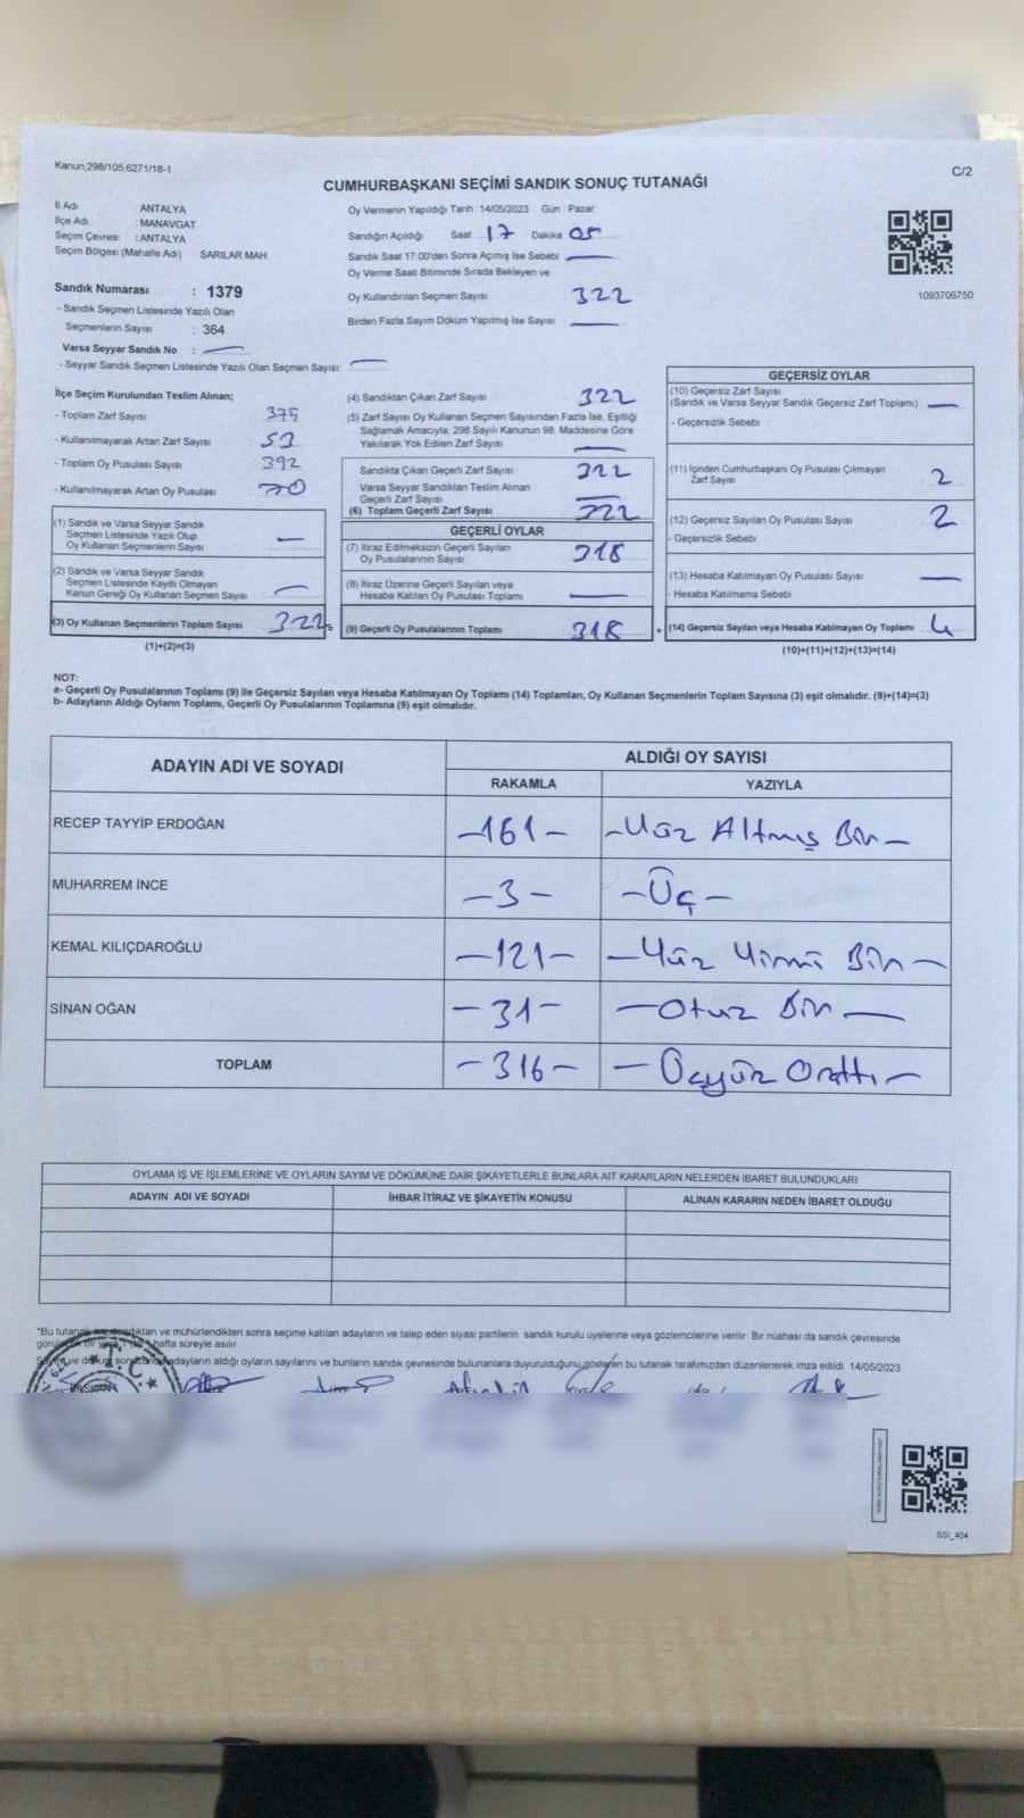 Kanun,298/105,6271/18-1
C/2
CUMHURBAŞKANI SEÇİMİ SANDIK SONUÇ TUTANAĞI
İl Adı ANTALYA
İlçe Adı : MANAVGAT
Seçim Çevresi : ANTALYA
Seçim Bölgesi (Mahalle Adı) SARILAR MAH.
Sandık Numarası : 1379
- Sandık Seçmen Listesinde Yazılı Olan
Seçmenlerin Sayısı : 364
Varsa Seyyar Sandık No : —
- Seyyar Sandık Seçmen Listesinde Yazılı Olan Seçmen Sayısı: —
Oy Vermenin Yapıldığı Tarih : 14/05/2023 Gün : Pazar
Sandığın Açıldığı Saat 17 Dakika 05
Sandık Saat 17:00'den Sonra Açılmış İse Sebebi —
Oy Verme Saati Bitiminde Sırada Bekleyen ve
Oy Kullandırılan Seçmen Sayısı 322
Birden Fazla Sayım Döküm Yapılmış İse Sayısı —
1093706750
İlçe Seçim Kurulundan Teslim Alınan;
- Toplam Zarf Sayısı 375
- Kullanılmayarak Artan Zarf Sayısı 53
- Toplam Oy Pusulası Sayısı 392
- Kullanılmayarak Artan Oy Pusulası 70
(1) Sandık ve Varsa Seyyar Sandık
Seçmen Listesinde Yazılı Olup
Oy Kullanan Seçmenlerin Sayısı —
(2) Sandık ve Varsa Seyyar Sandık
Seçmen Listesinde Kayıtlı Olmayan
Kanun Gereği Oy Kullanan Seçmen Sayısı —
(3) Oy Kullanan Seçmenlerin Toplam Sayısı 322
(1)+(2)=(3)
(4) Sandıktan Çıkan Zarf Sayısı 322
(5) Zarf Sayısı Oy Kullanan Seçmen Sayısından Fazla İse, Eşitliği
Sağlamak Amacıyla, 298 Sayılı Kanunun 98. Maddesine Göre
Yakılarak Yok Edilen Zarf Sayısı —
Sandıkta Çıkan Geçerli Zarf Sayısı 322
Varsa Seyyar Sandıktan Teslim Alınan
Geçerli Zarf Sayısı —
(6) Toplam Geçerli Zarf Sayısı 322
GEÇERLİ OYLAR
(7) İtiraz Edilmeksizin Geçerli Sayılan
Oy Pusulalarının Sayısı 318
(8) İtiraz Üzerine Geçerli Sayılan veya
Hesaba Katılan Oy Pusulası Toplamı —
(9) Geçerli Oy Pusulalarının Toplamı 318
GEÇERSİZ OYLAR
(10) Geçersiz Zarf Sayısı
(Sandık ve Varsa Seyyar Sandık Geçersiz Zarf Toplamı) —
- Geçersizlik Sebebi :
(11) İçinden Cumhurbaşkanı Oy Pusulası Çıkmayan
Zarf Sayısı 2
(12) Geçersiz Sayılan Oy Pusulası Sayısı 2
- Geçersizlik Sebebi
(13) Hesaba Katılmayan Oy Pusulası Sayısı —
- Hesaba Katılmama Sebebi
(14) Geçersiz Sayılan veya Hesaba Katılmayan Oy Toplamı 4
(10)+(11)+(12)+(13)=(14)
NOT:
a- Geçerli Oy Pusulalarının Toplamı (9) ile Geçersiz Sayılan veya Hesaba Katılmayan Oy Toplamı (14) Toplamları, Oy Kullanan Seçmenlerin Toplam Sayısına (3) eşit olmalıdır. (9)+(14)=(3)
b- Adayların Aldığı Oyların Toplamı, Geçerli Oy Pusulalarının Toplamına (9) eşit olmalıdır.
ADAYIN ADI VE SOYADI
ALDIĞI OY SAYISI
RAKAMLA YAZIYLA
RECEP TAYYİP ERDOĞAN -161- -Yüz Altmış Bir-
MUHARREM İNCE -3- -Üç-
KEMAL KILIÇDAROĞLU -121- -Yüz Yirmi Bir-
SİNAN OĞAN -31- -Otuz Bir-
TOPLAM -316- -Üçyüz Onaltı-
OYLAMA İŞ VE İŞLEMLERİNE VE OYLARIN SAYIM VE DÖKÜMÜNE DAİR ŞİKAYETLERLE BUNLARA AİT KARARLARIN NELERDEN İBARET BULUNDUKLARI
ADAYIN ADI VE SOYADI İHBAR İTİRAZ VE ŞİKAYETİN KONUSU ALINAN KARARIN NEDEN İBARET OLDUĞU
ve mühürlendikten sonra seçime katılan adayların ve talep eden siyasi partilerin sandık kurulu üyelerine veya gözlemcilerine verilir. Bir nüshası da sandık çevresinde
hafta süreyle asılır
adayların aldığı oyların sayılarını ve bunların sandık çevresinde bulunanlara duyurulduğunu gösteren bu tutanak tarafımızdan düzenlenerek imza edildi. 14/05/2023
T.C.
SSI_404